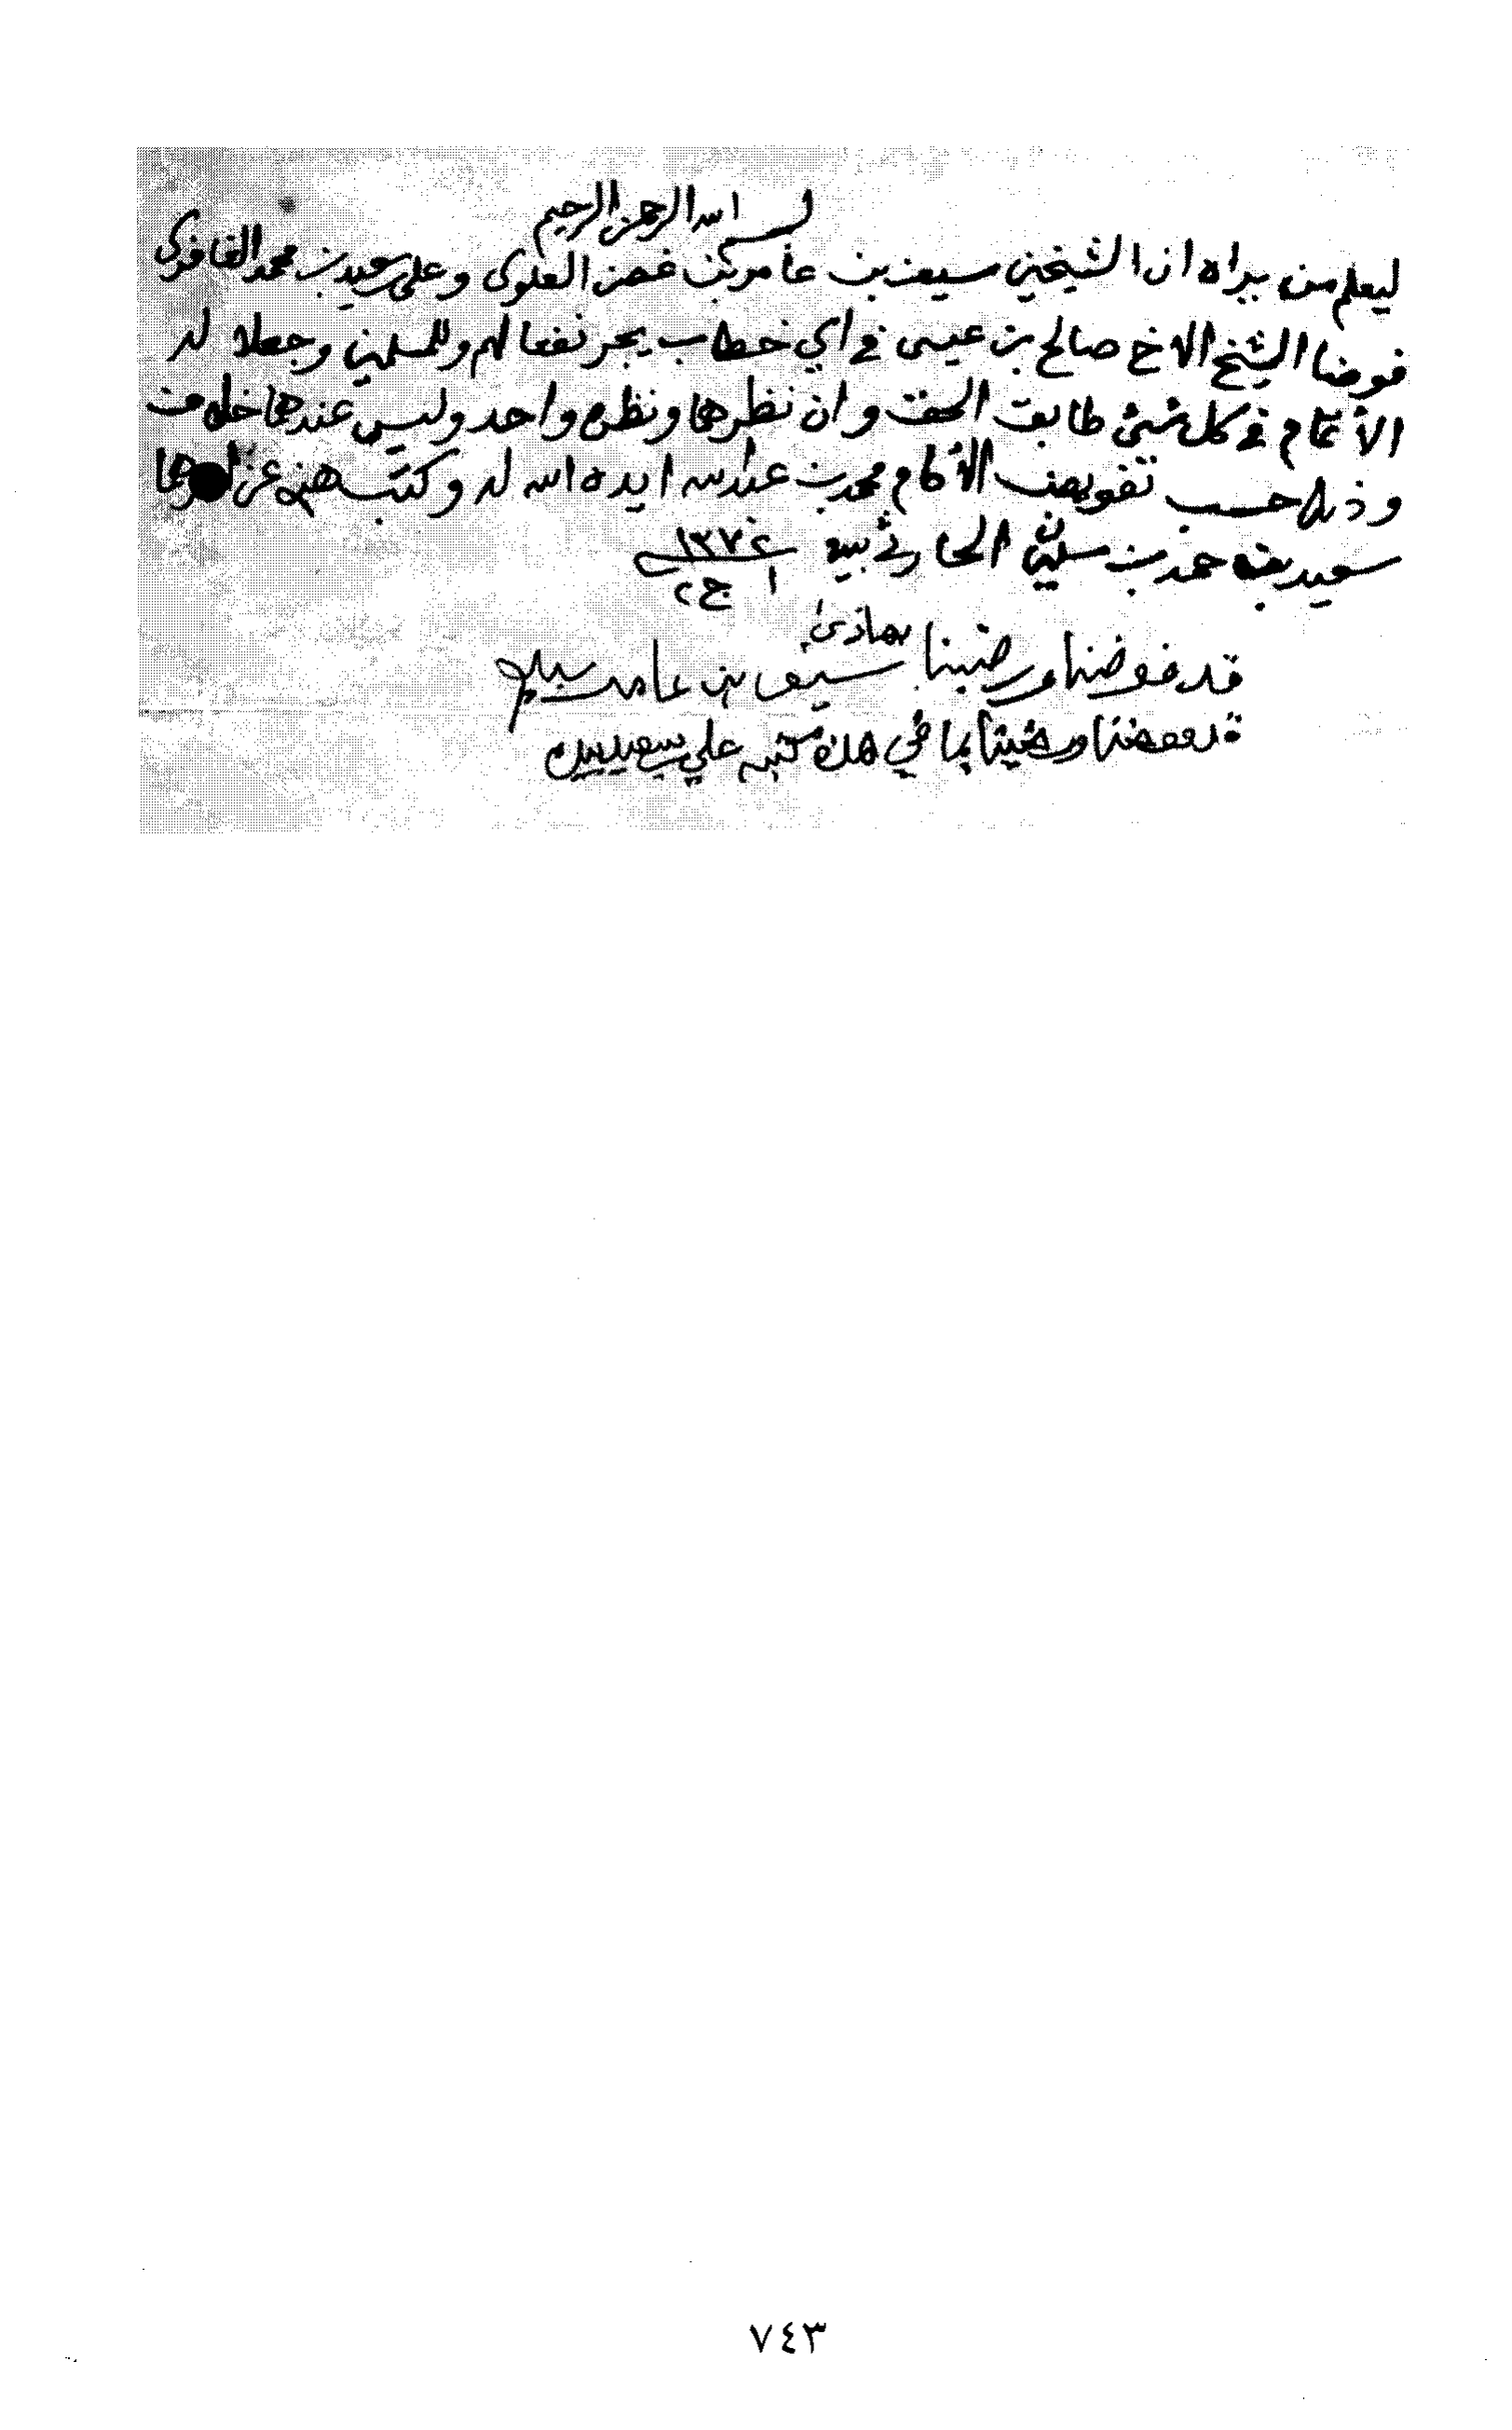 بسم الله الرحمن الرحيم
ليعلم من يراه ان الشيخين سيف بن عامر بن غصن العلوي وعلي بن سعيد بن محمد الغافري
فوضا الشيخ الاخ صالح بن عيسى في اي خطاب يجر نفعا لهم وللمسلمين وجعلا له
الأتمام في كل شيئ طابق الحق وان نظرهما ونظره واحد وليس عندهما خلاف
وذلك حسب تفويض الأمام محمد بن عبدالله ايده الله له وكتب هذه عن
سعيد بن حمد بن سليمان الحارثي بيده ١٣٧٤
١ ج ٢
قد فوضنا ورضينا بهاذى سيف بن عامر بيده
قد فوضنا ورضينا بما في هذه كتبه علي بن سعيد بيده
٧٤٣